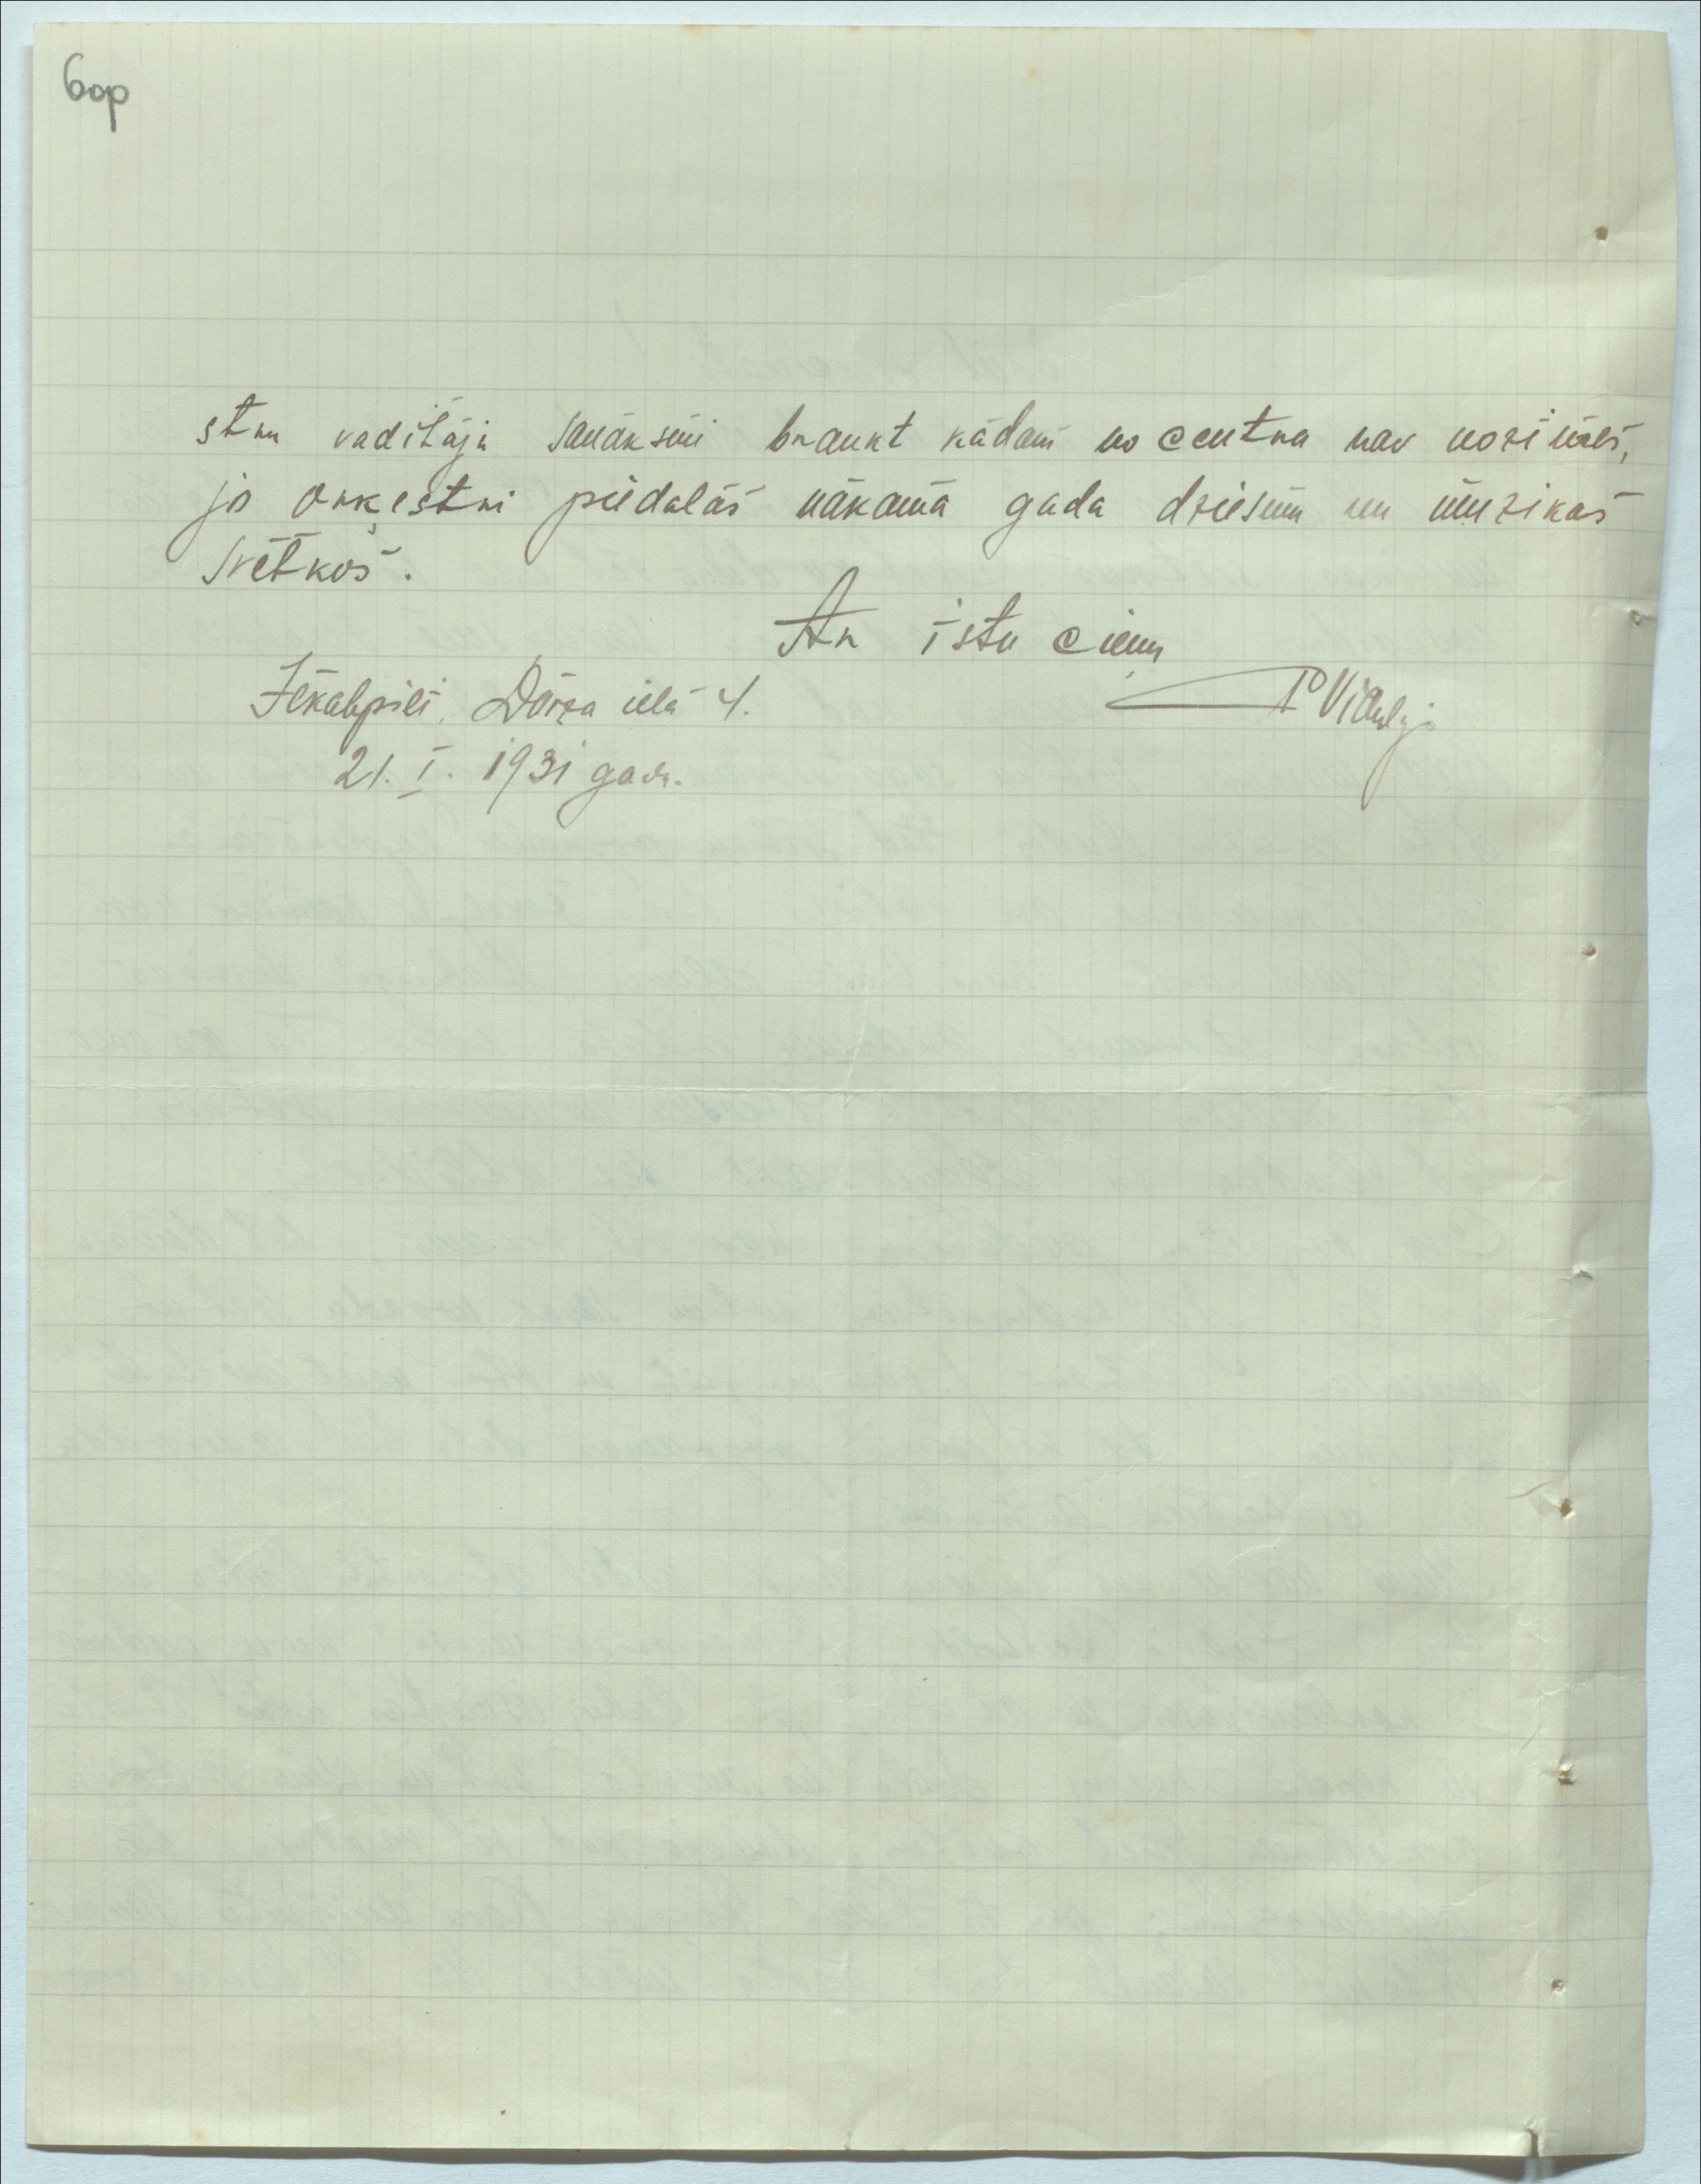 6op
stru vadītāju sanāksmi braukt kādam no centra nav nozīmes,
jo orķestri piedalās nākamā gada dziesmu un mūzikas
svētkos.
Ar īstu cieņu
Jēkabpilī, Dārza ielā 4.
21. I. 1931 gadā.